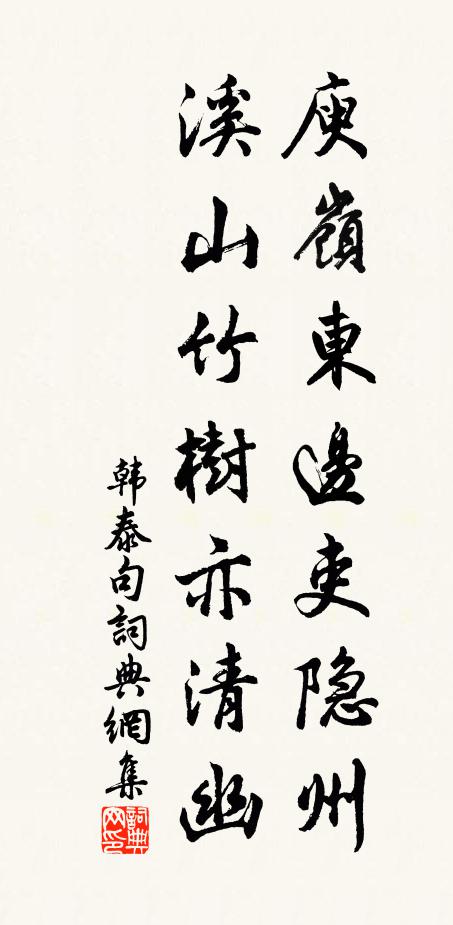 庾嶺東邊吏隐州
溪山竹樹亦清幽
韩泰句詞典網集
詞典网印